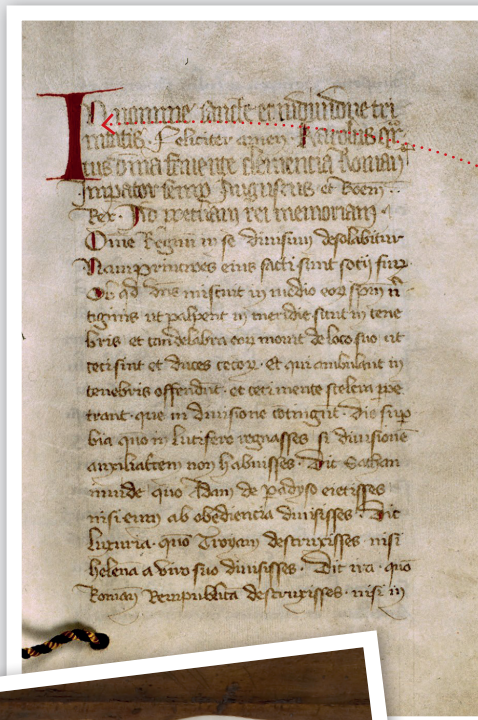 In nomine sancte et individue tri
nitatis feliciter amen Karolus qr
tus divina favente clementia Roman
Imperator semp Augustus et Boem
Rex Ad perpetuam rei memoriam
Omne Regnu in se divisum desolabitur
Nam principes eius facti sunt socij fur
Ob qd dns miscuit in medio eor spm v
tiginis ut palpent in meridie sicut in tene
bris et candelabra eor movit de loco suo ut
ceci sint et duces cecor Et qui ambulant in
tenebris offendut et ceci mente scelera ppe
trant que in divisione cotingut Dic sup
bia quo in Lucifero regnasses si divisione
auxiliatcem non habuisses Dic Sathan
invide quo Adam de padyso eiecisses
nisi eum ab obediencia divisisses Dic
luxuria quo Troyam destruxisses nisi
helena a viro suo divisisses Dic ira quo
Roman Rempublica destruxisses nisi in